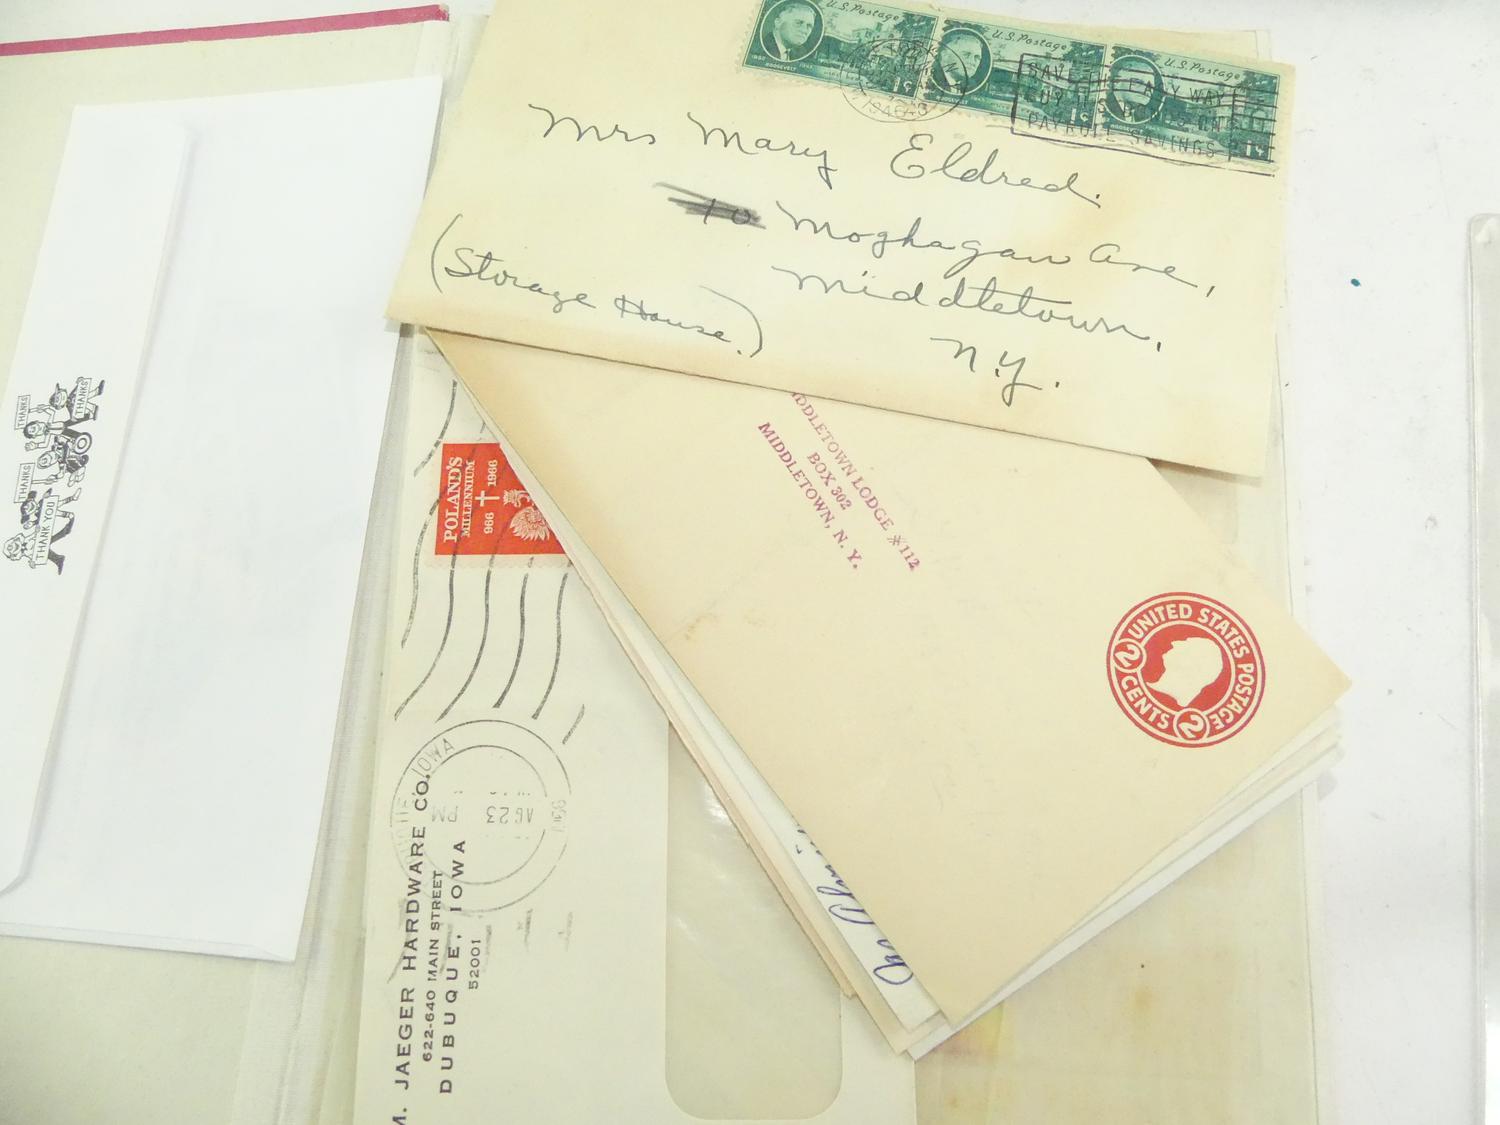 U.S. Postage
U.S. Postage
U.S. Postage
1¢
1¢
1¢
SAVE THE EASY WAY
BUY U.S. BONDS ON
PAYROLL SAVINGS
Mrs Mary Eldred.
10 Moghagan Ave,
Middletown,
N.Y.
(Storage House.)
MIDDLETOWN LODGE #112
BOX 302
MIDDLETOWN, N. Y.
UNITED STATES POSTAGE
2 CENTS 2
POLAND'S
MILLENNIUM
966 1966
IOWA
PM
AG 23
M. JAEGER HARDWARE CO.
622-640 MAIN STREET
DUBUQUE, IOWA
52001
THANKS
THANKS
THANKS
THANK YOU